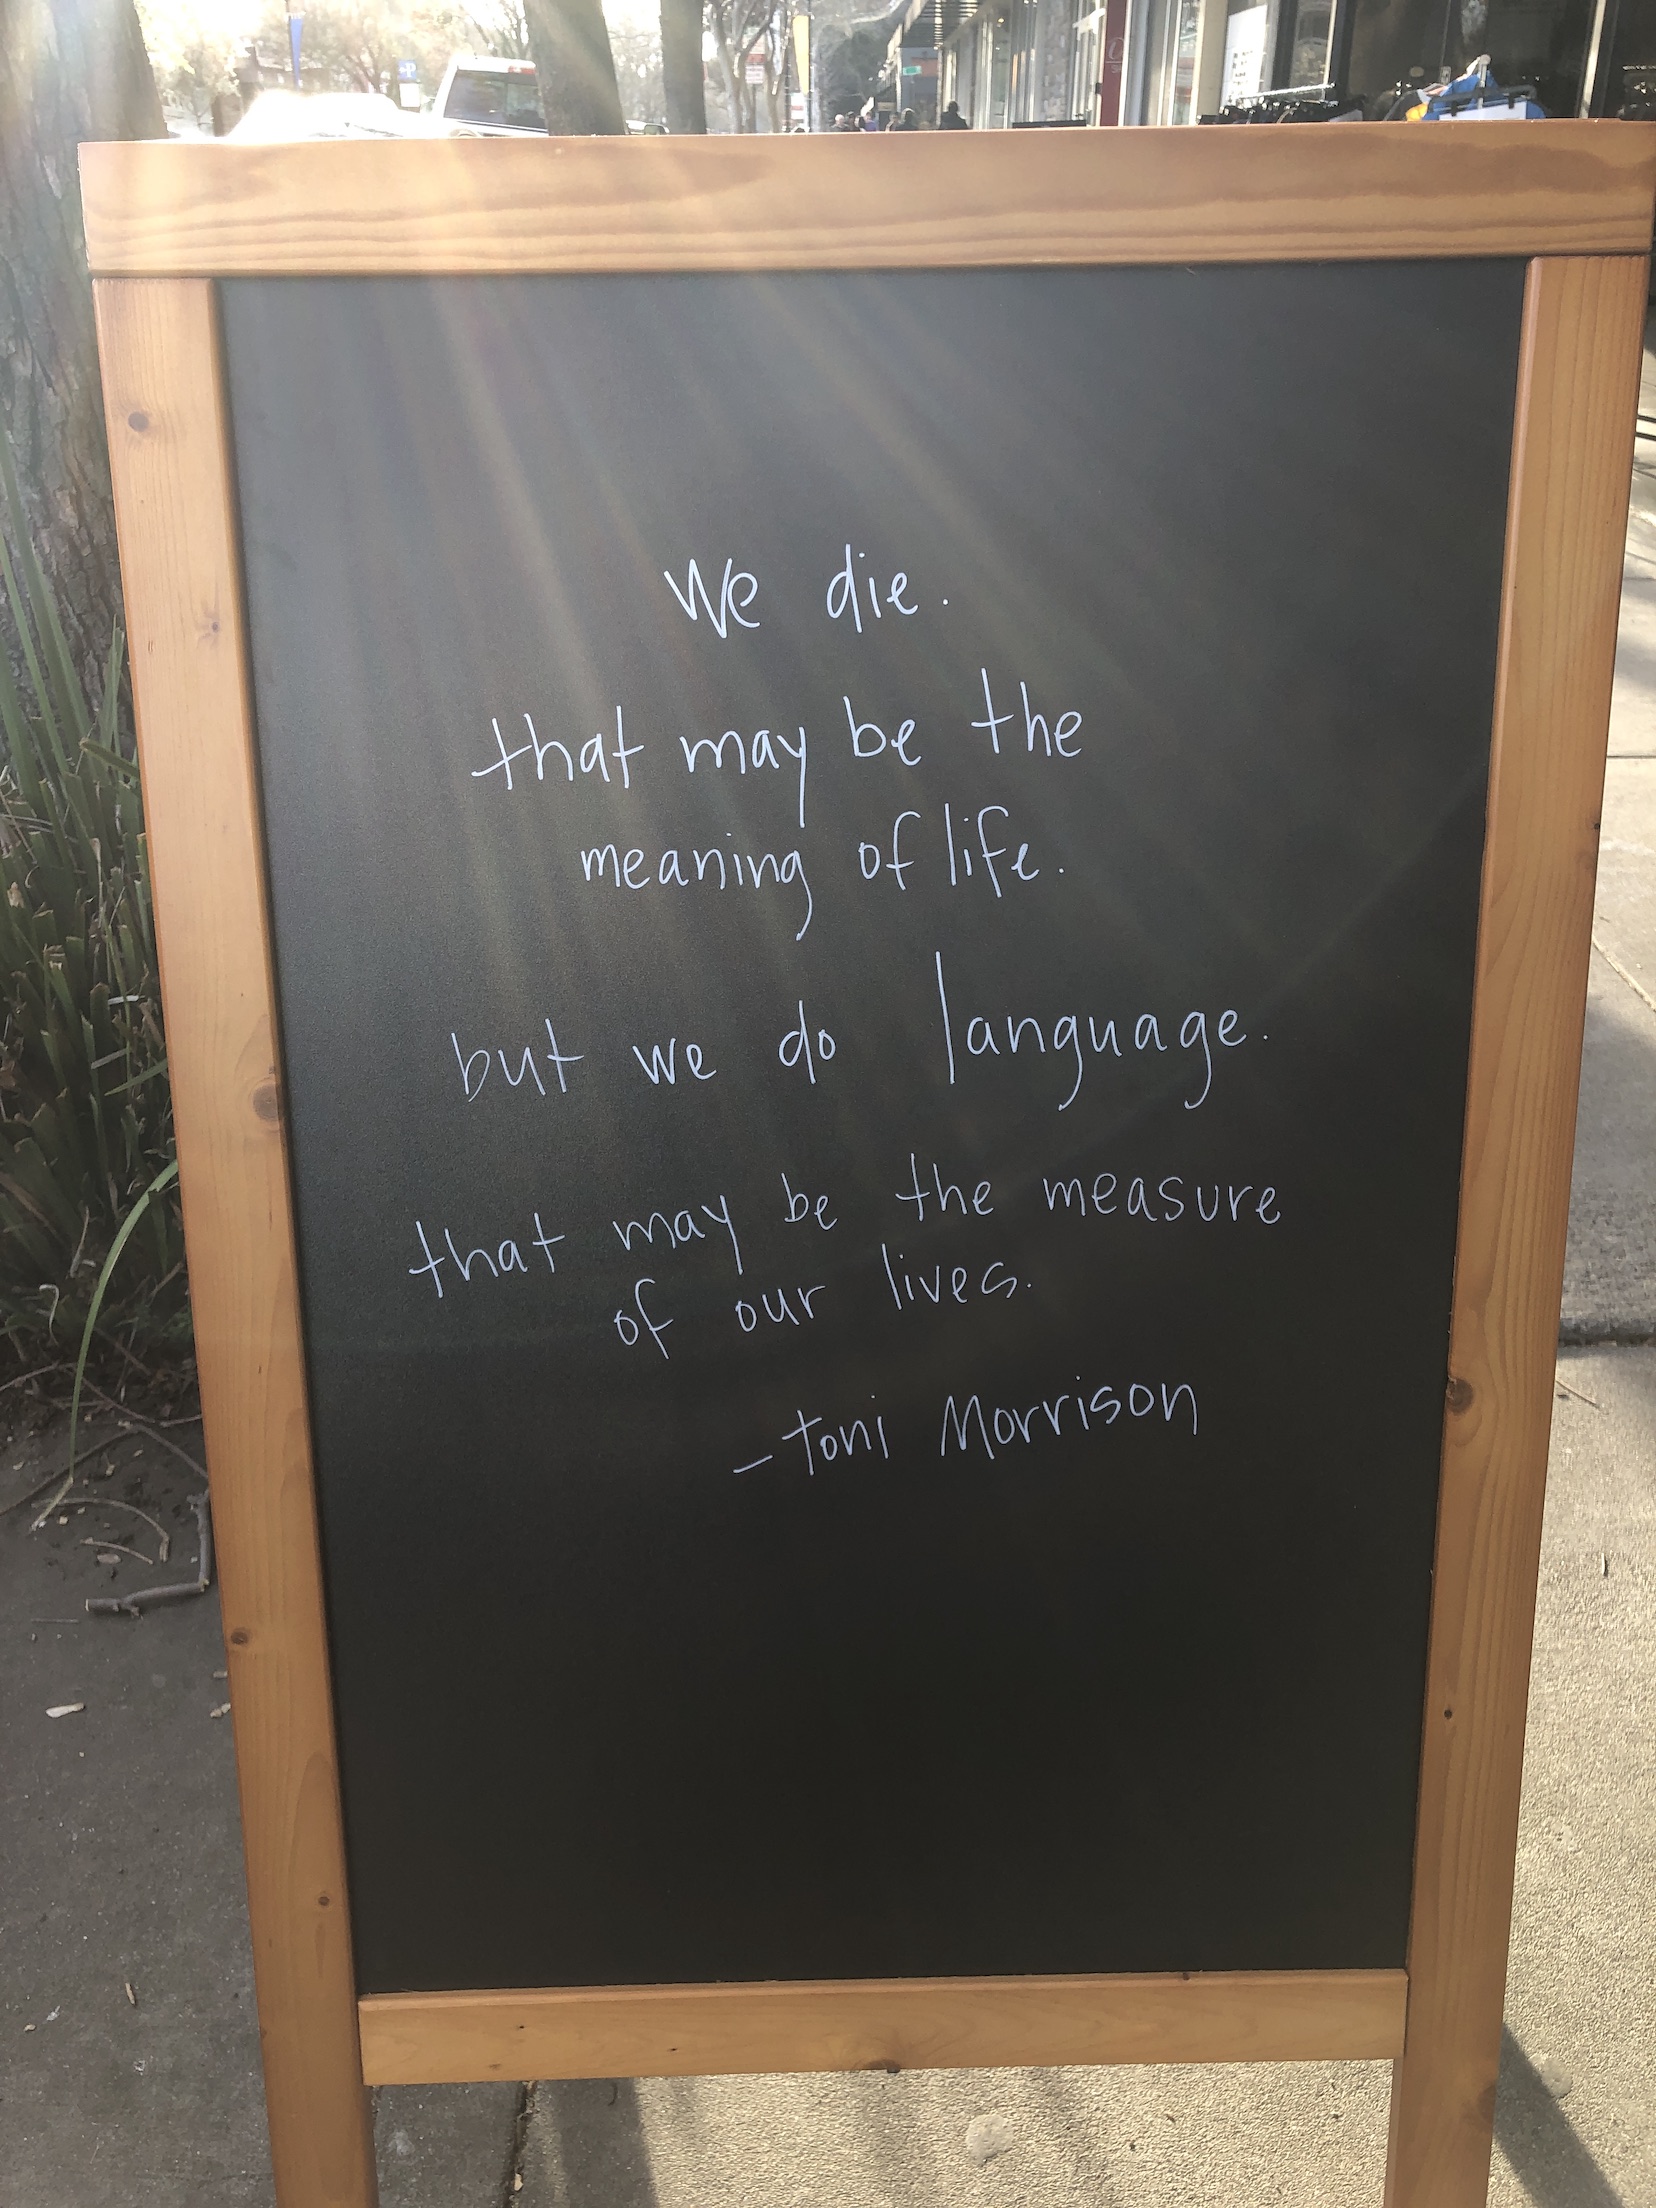 We die.
that may be the
meaning of life.
but we do language.
that may be the measure
of our lives.
- Toni Morrison